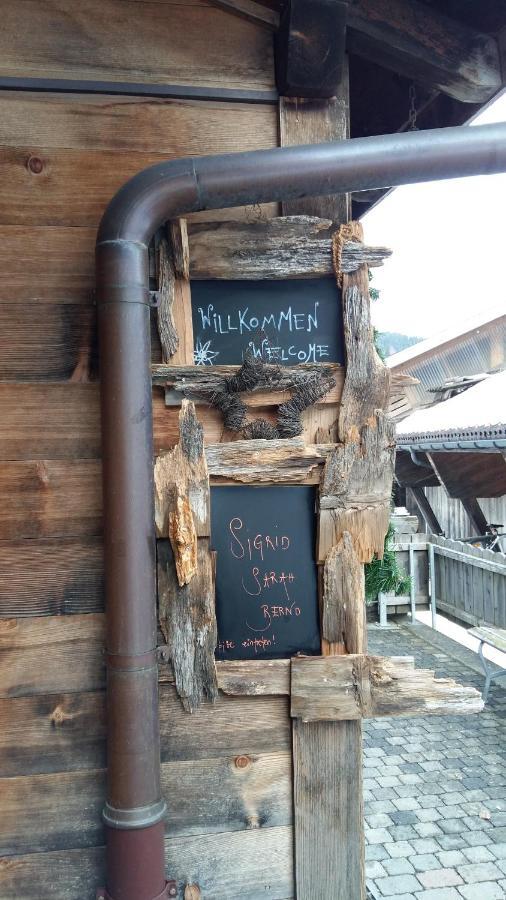 WILLKOMMEN
WELCOME
SIGRID
SARAH
BERND
eintreten!